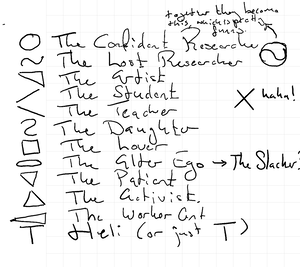 together they become
this, which is pretty
funny
The Confident Researcher
The Lost Researcher
The Artist
The Student
haha!
The Teacher
The Daughter
The Lover
The Alter Ego → The Slacker?
The Patient
The Activist.
The Worker Ant
T Heli (or just T)